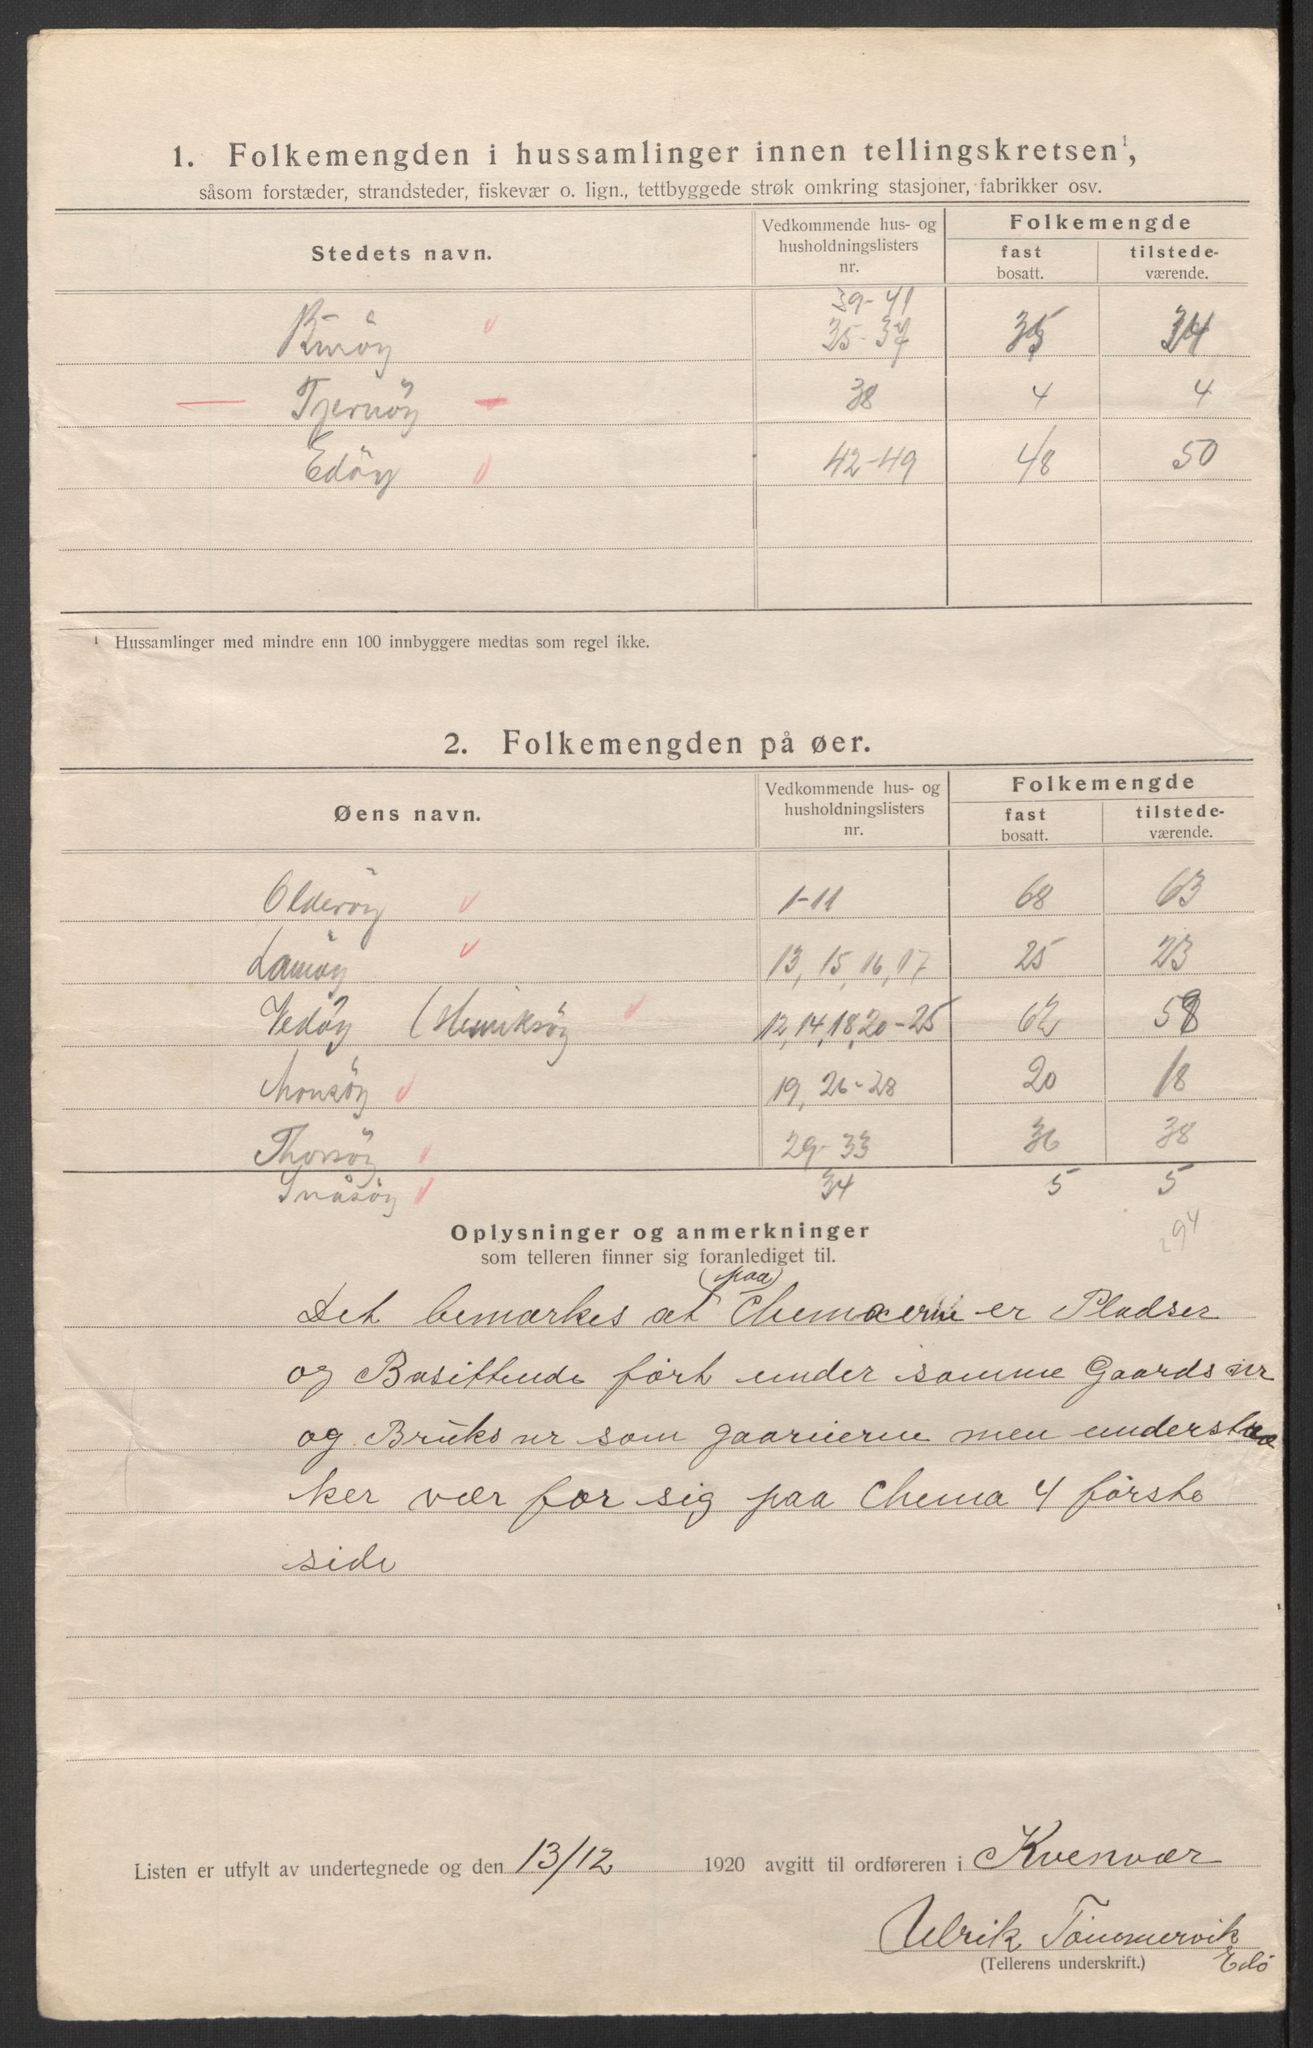 1. Folkemengden i hussamlinger innen tellingskretsen¹,
såsom forstæder, strandsteder, fiskevær o. lign., tettbyggede strøk omkring stasjoner, fabrikker osv.
Stedets navn. Vedkommende hus- og husholdningslisters nr. Folkemengde fast bosatt. tilstede-værende.
39-41
35-37 35 34
Tjernöy 38 4 4
Edöy 42-49 48 50
¹ Hussamlinger med mindre enn 100 innbyggere medtas som regel ikke.
2. Folkemengden på øer.
Øens navn. Vedkommende hus- og husholdningslisters nr. Folkemengde fast bosatt. tilstede-værende.
Olderöy 1-11 68 63
Lamöy 13, 15, 16, 17 25 23
Vedöy (Henriksöy 12, 14, 18, 20-25 62 58
Monsöy 19, 26-28 20 18
Thorsöy 29-33 36 38
Snåsöy 34 5 5
294
Oplysninger og anmerkninger
som telleren finner sig foranlediget til.
(paa)
Det bemærkes at Chemaerne er Pladser
og Bosittende ført under samme Gaards nr
og Bruks nr som gaarderne men understræ
ker vær for sig paa Chema 4 første
side
Listen er utfylt av undertegnede og den 13/12 1920 avgitt til ordføreren i Kvenvær
Ulrik Tömmervik
(Tellerens underskrift.) Edö